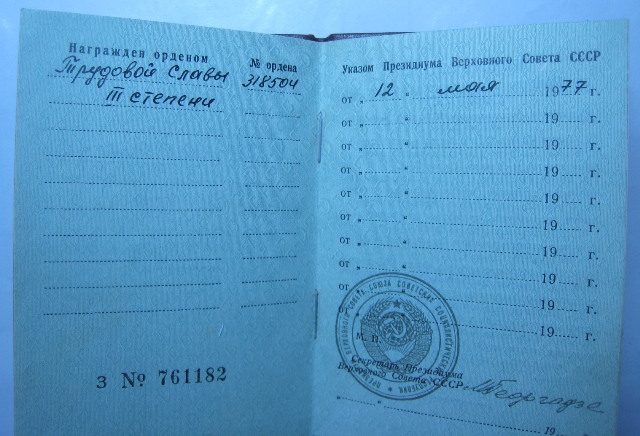 Награжден орденом
№ ордена
Трудовой Славы
318504
III степени
З № 761182
Указом Президиума Верховного Совета СССР
от „ 12 “ мая 1977 г.
от „ “ 19 г.
от „ “ 19 г.
от „ “ 19 г.
от „ “ 19 г.
от „ “ 19 г.
от „ “ 19 г.
от „ “ 19 г.
от „ “ 19 г.
19 г.
М. П.
Секретарь Президиума
Верховного Совета СССР
М Георгадзе
19